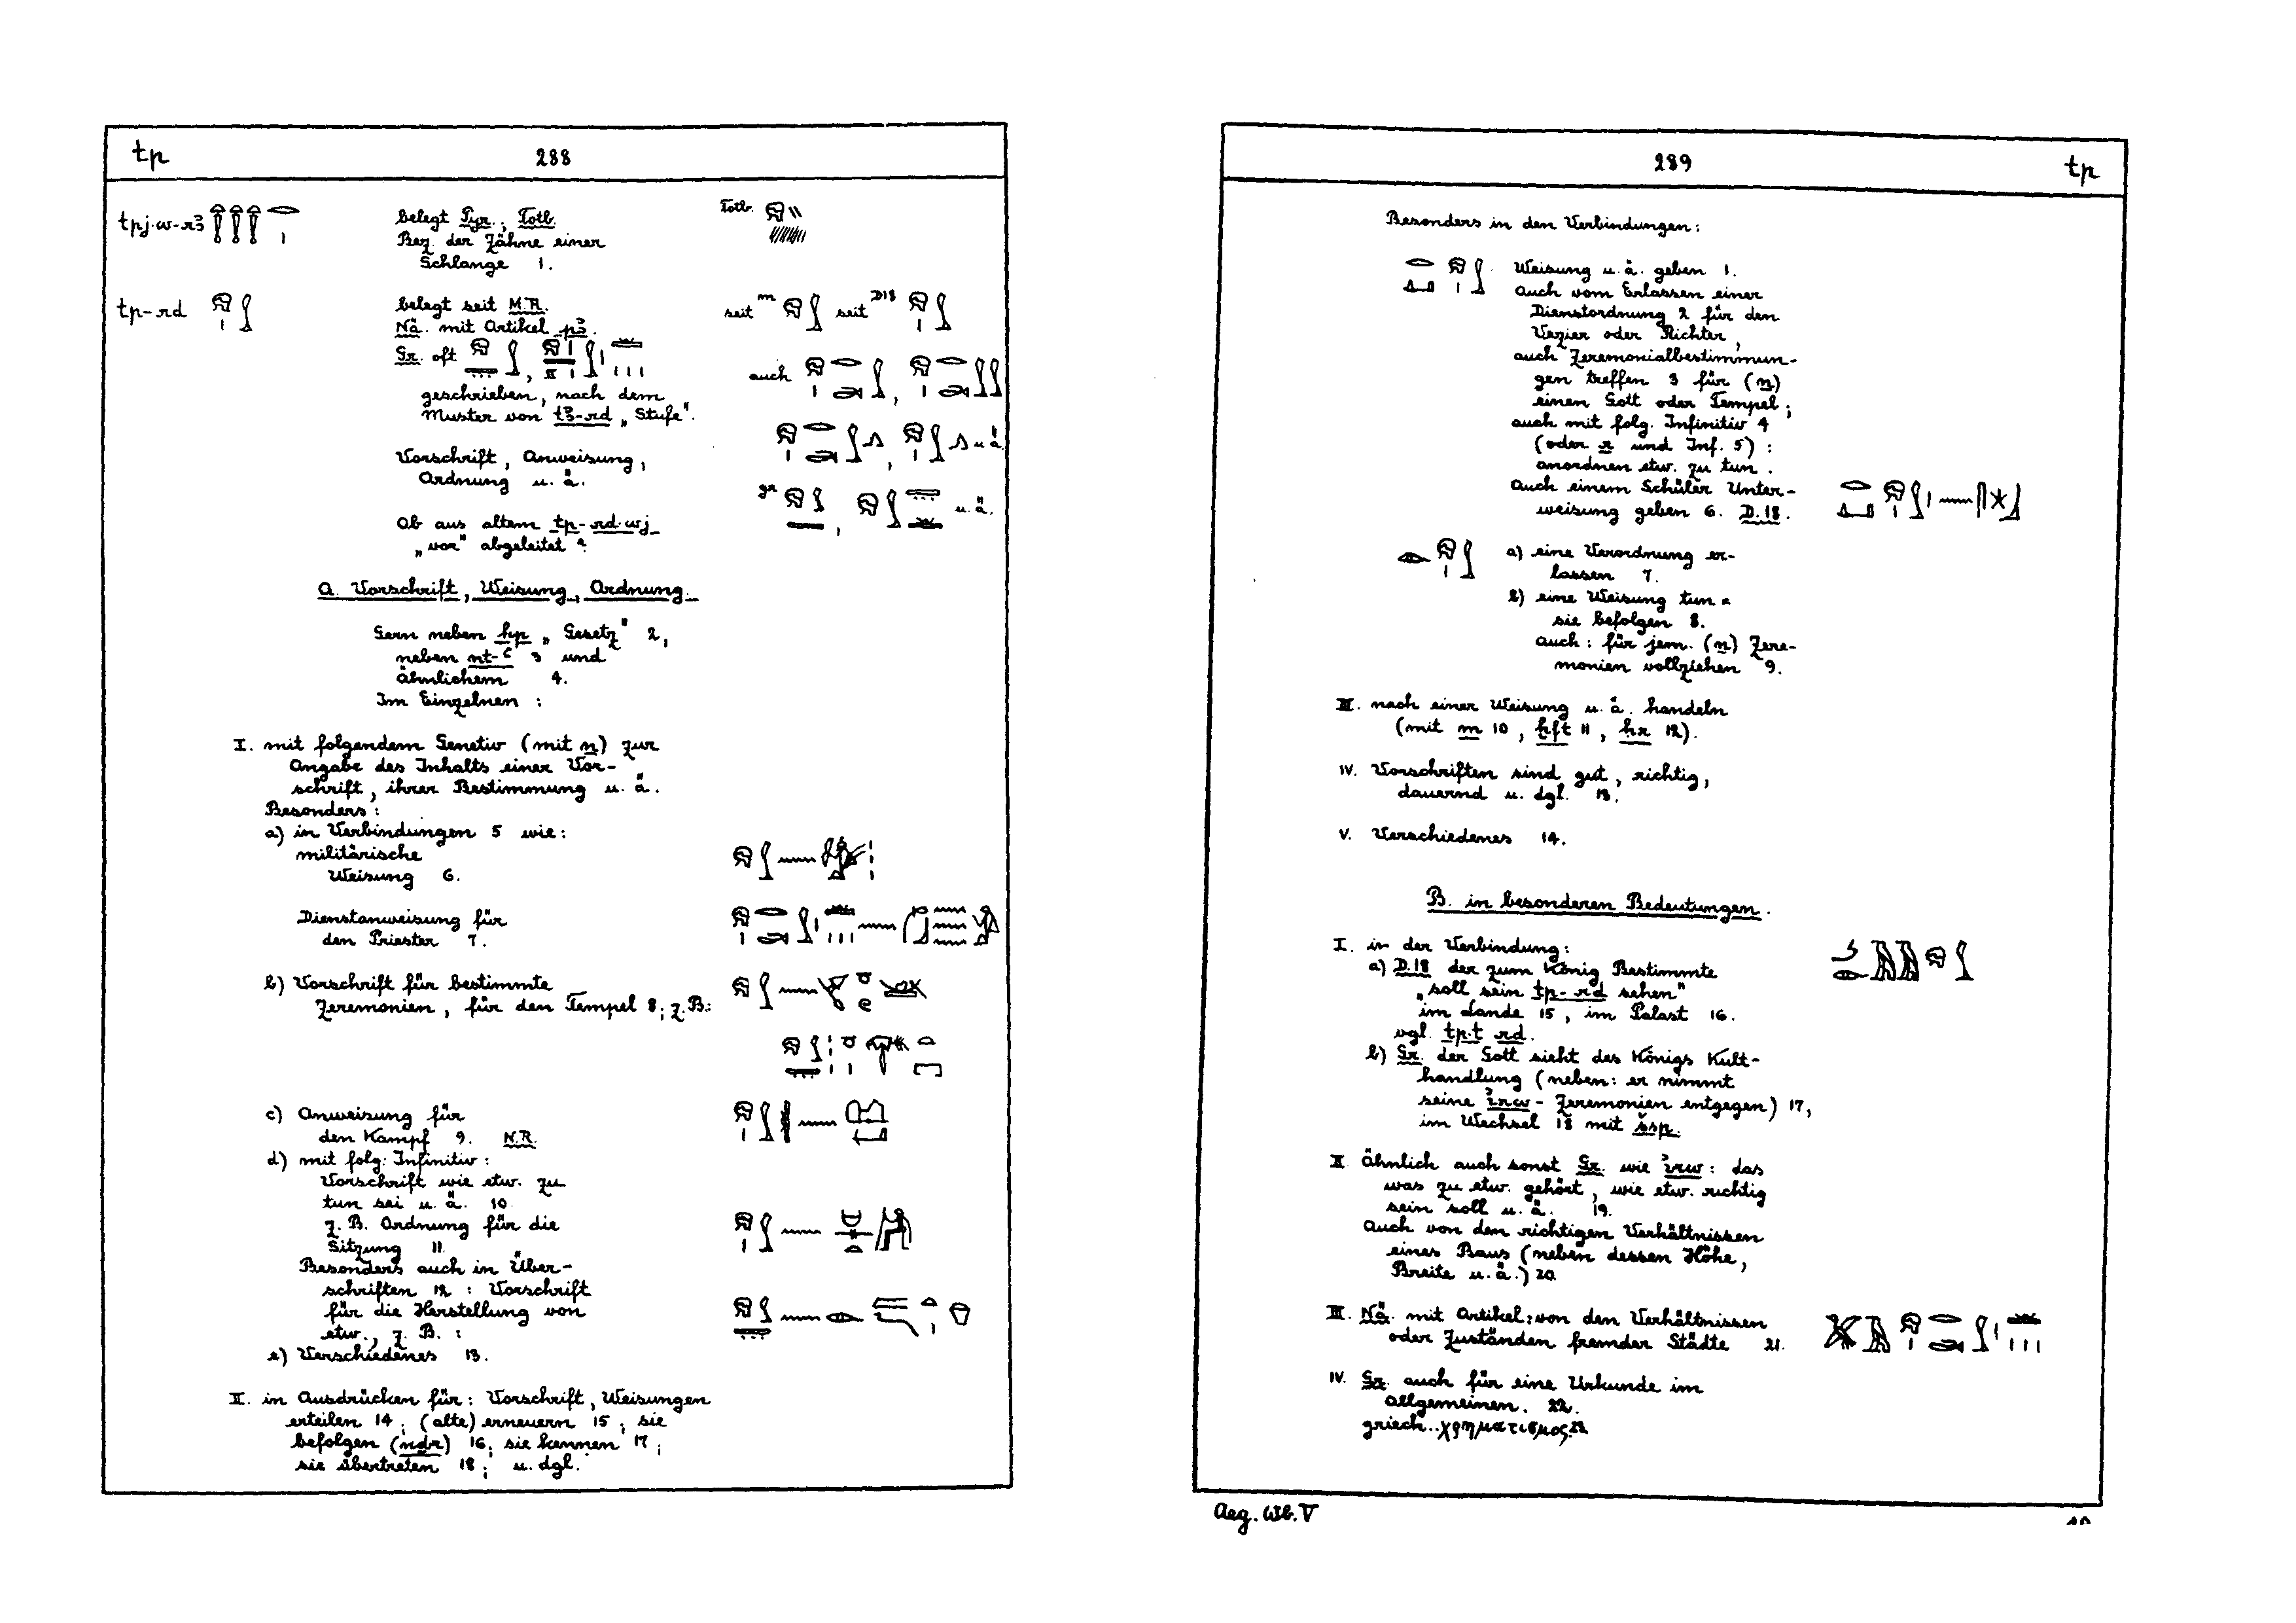 tp 288
tpj·w-r3 belegt Pyr.; Totb. Totb.
Bez. der Zähne einer
Schlange 1.
tp-rd belegt seit M.R. seit m seit D18
Nä. mit Artikel p3.
Gr. oft
auch
geschrieben, nach dem
Muster von t3-rd „Stufe".
u. ä.
Vorschrift, Anweisung,
Ordnung u. ä.
gr u. ä.
Ob aus altem tp-rd·wj
„vor" abgeleitet?
A. Vorschrift, Weisung, Ordnung.
Gern neben hp „Gesetz" 2,
neben nt-ꜥ 3 und
ähnlichem 4.
Im Einzelnen:
I. mit folgendem Genetiv (mit n) zur
Angabe des Inhalts einer Vor-
schrift, ihrer Bestimmung u. ä.
Besonders:
a) in Verbindungen 5 wie:
militärische
Weisung 6.
Dienstanweisung für
den Priester 7.
b) Vorschrift für bestimmte
Zeremonien, für den Tempel 8; z.B.:
c) Anweisung für
den Kampf 9. N.R.
d) mit folg. Infinitiv:
Vorschrift wie etw. zu
tun sei u. ä. 10.
z. B. Ordnung für die
Sitzung 11.
Besonders auch in Über-
schriften 12: Vorschrift
für die Herstellung von
etw., z. B.:
e) Verschiedenes 13.
II. in Ausdrücken für: Vorschrift, Weisungen
erteilen 14; (alte) erneuern 15; sie
befolgen (nḏr) 16; sie kennen 17;
sie übertreten 18; u. dgl.
289 tp
Besonders in den Verbindungen:
Weisung u. ä. geben 1.
auch vom Erlassen einer
Dienstordnung 2 für den
Vezier oder Richter,
auch Zeremonialbestimmun-
gen treffen 3 für (n)
einen Gott oder Tempel;
auch mit folg. Infinitiv 4
(oder r und Inf. 5):
anordnen etw. zu tun.
Auch einem Schüler Unter-
weisung geben 6. D.18.
a) eine Verordnung er-
lassen 7.
b) eine Weisung tun =
sie befolgen 8.
auch: für jem. (n) Zere-
monien vollziehen 9.
III. nach einer Weisung u. ä. handeln
(mit m 10, ḫft 11, ḥr 12).
IV. Vorschriften sind gut, richtig,
dauernd u. dgl. 13.
V. Verschiedenes 14.
B. in besonderen Bedeutungen.
I. in der Verbindung:
a) D.18 der zum König Bestimmte
„soll sein tp-rd sehen"
im Lande 15, im Palast 16.
vgl. tp·t rd.
b) Gr. der Gott sieht des Königs Kult-
handlung (neben: er nimmt
seine irw-Zeremonien entgegen) 17,
im Wechsel 18 mit šsp.
II. ähnlich auch sonst Gr. wie irw: das
was zu etw. gehört, wie etw. richtig
sein soll u. ä. 19.
Auch von den richtigen Verhältnissen
eines Baus (neben dessen Höhe,
Breite u. ä.) 20.
III. Nä. mit Artikel: von den Verhältnissen
oder Zuständen fremder Städte 21.
IV. Gr. auch für eine Urkunde im
Allgemeinen. 22.
griech. χρηματισμος
Aeg. Wb. V